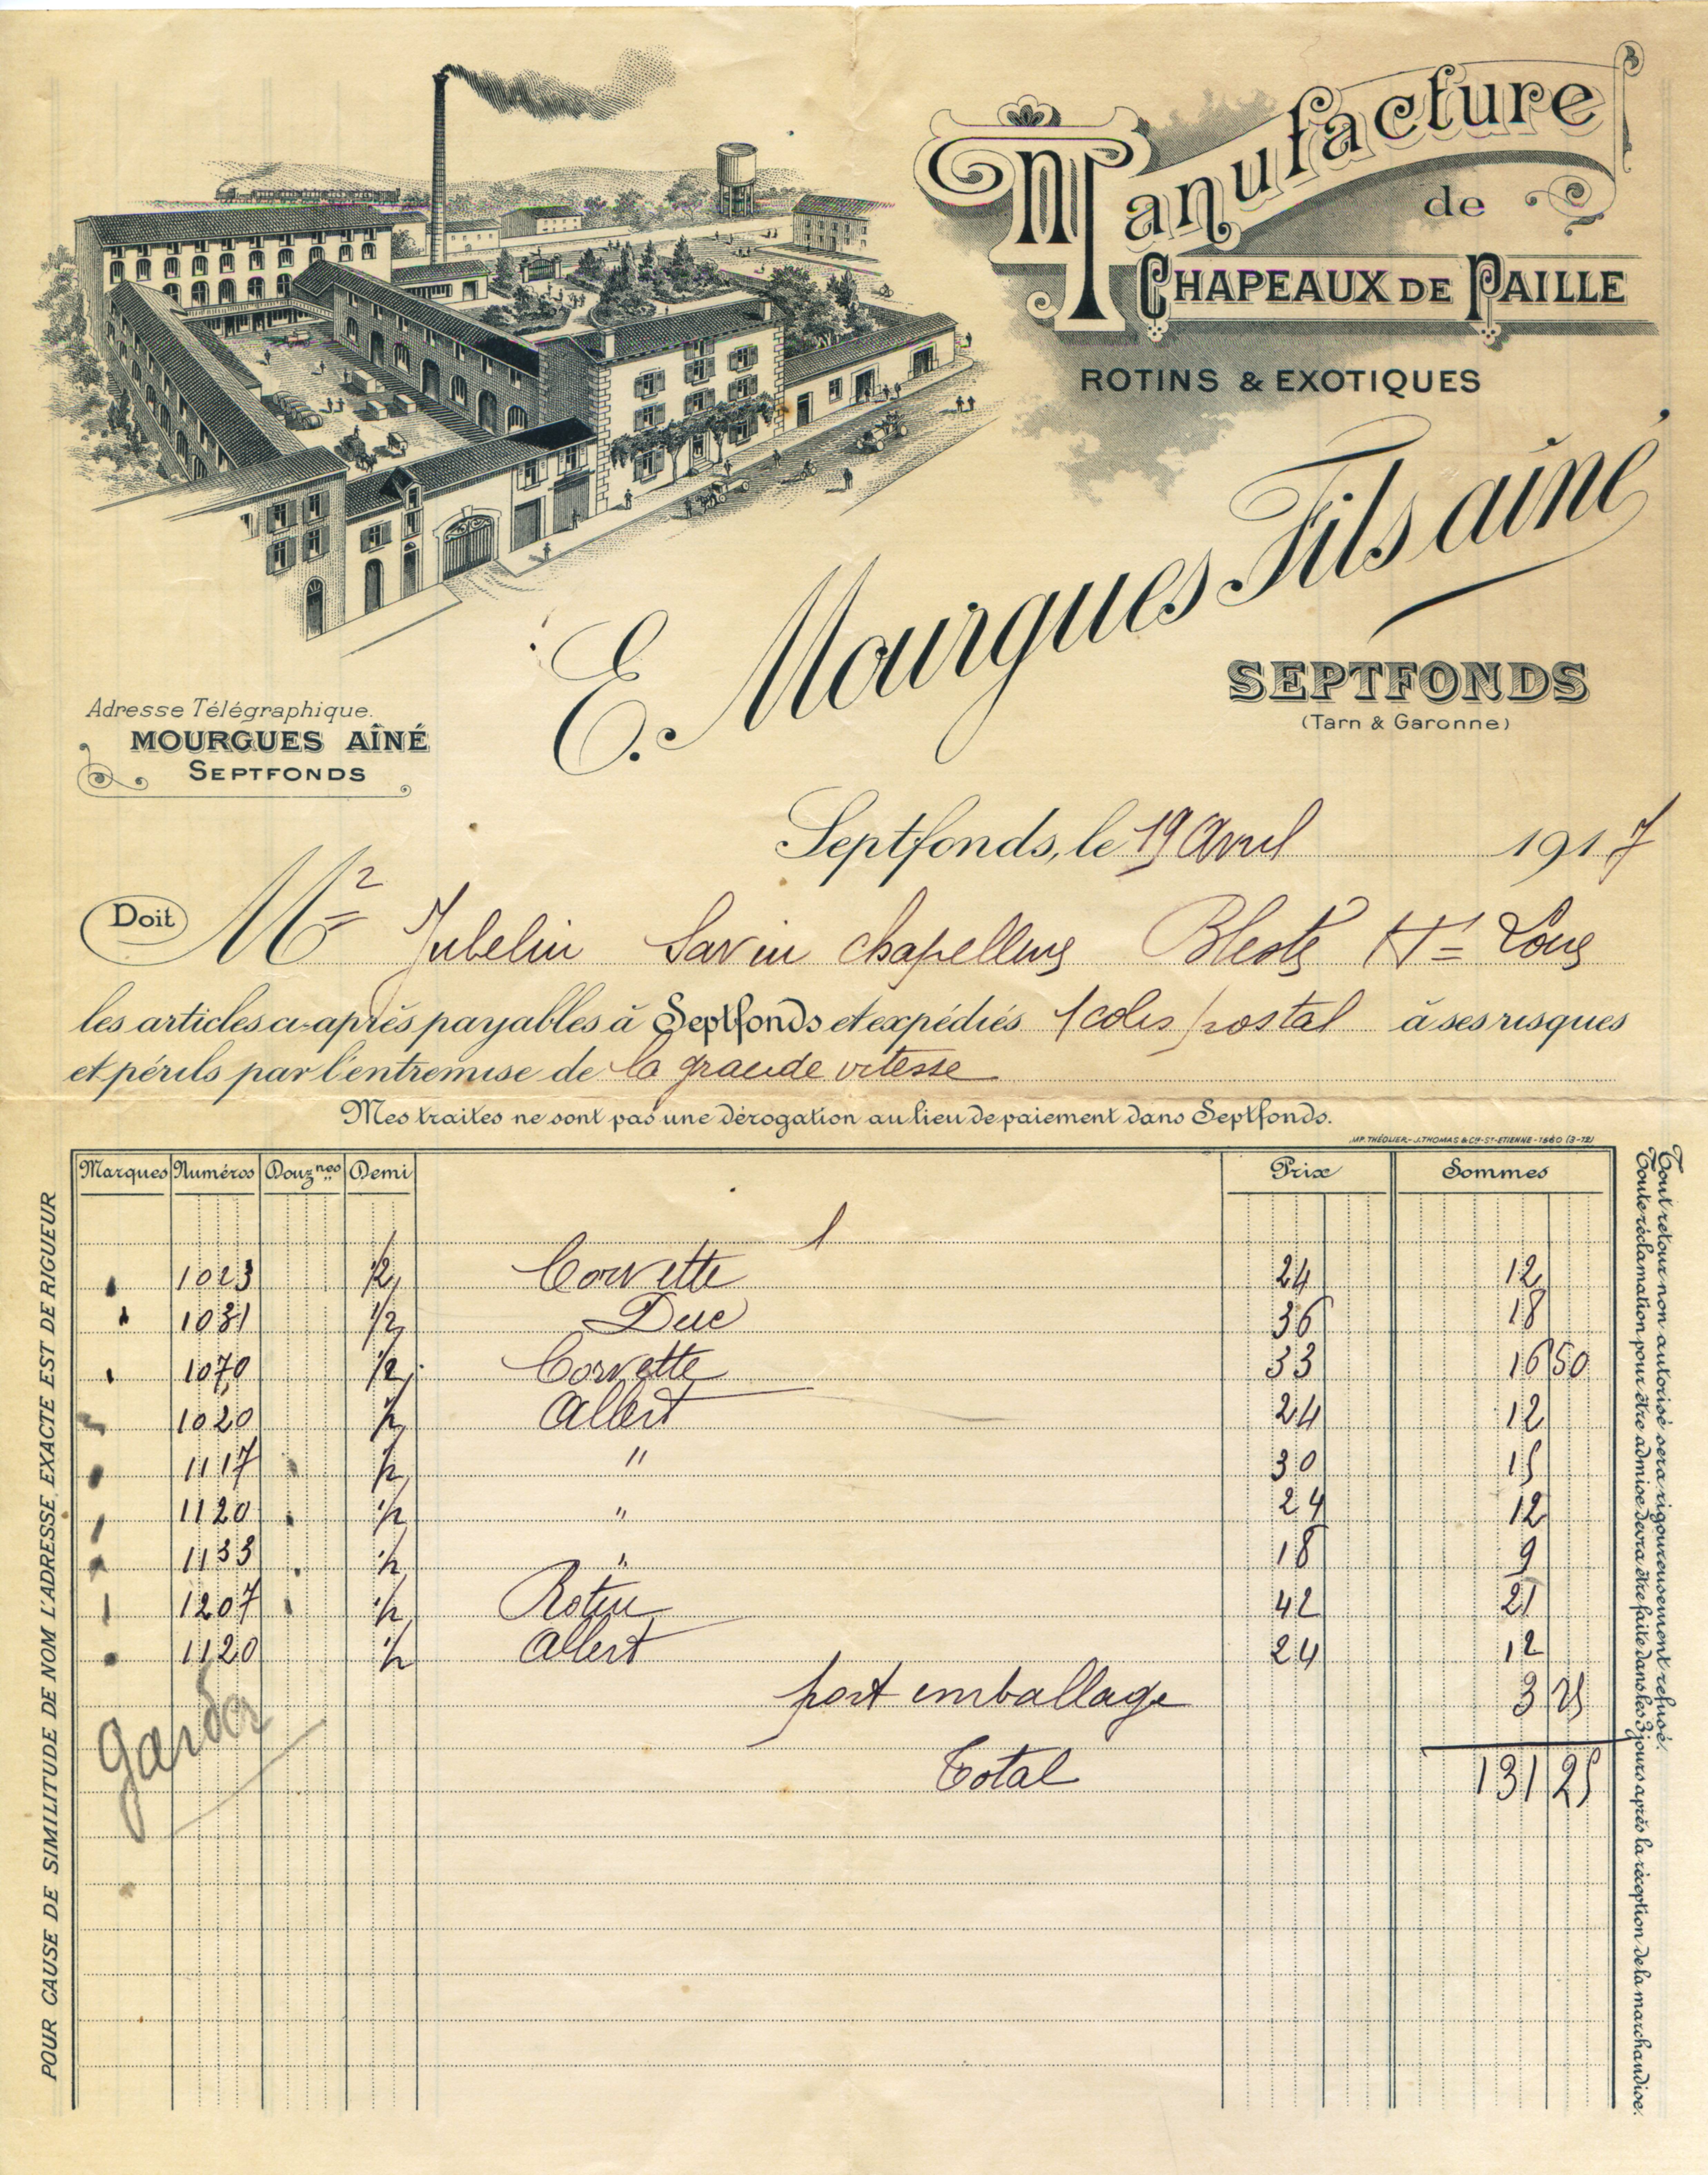 Manufacture
de
CHAPEAUX DE PAILLE
ROTINS & EXOTIQUES
E. Mourgues Fils aîné
SEPTFONDS
(Tarn & Garonne)
Adresse Télégraphique.
MOURGUES AÎNÉ
SEPTFONDS
Septfonds, le 19 Avril 1917
Doit Mr Jubelin Savin chapelleries Blesle Hte Loire
les articles ci-après payables à Septfonds et expédiés 1 colis postal à ses risques
et périls par l'entremise de la grande vitesse
Mes traites ne sont pas une dérogation au lieu de paiement dans Septfonds.
IMP. THÉOLIER - J. THOMAS & Cie - ST-ETIENNE - 1860 (3-12)
Marques Numéros Douznes Demi Prix Sommes
1
1023 1/2 Corvette 24 12
1031 1/2 Duc 36 18
1070 1/2 Corvette 33 16 50
1020 1/2 Albert 24 12
1117 1/2 " 30 15
1120 1/2 " 24 12
1133 1/2 " 18 9
1207 1/2 Rotin 42 21
1120 1/2 Albert 24 12
port emballage 3 25
Total 131 25
POUR CAUSE DE SIMILITUDE DE NOM L'ADRESSE EXACTE EST DE RIGUEUR
Tout retour non autorisé sera rigoureusement refusé.
Toute réclamation pour être admise devra être faite dans les 3 jours après la réception de la marchandise.